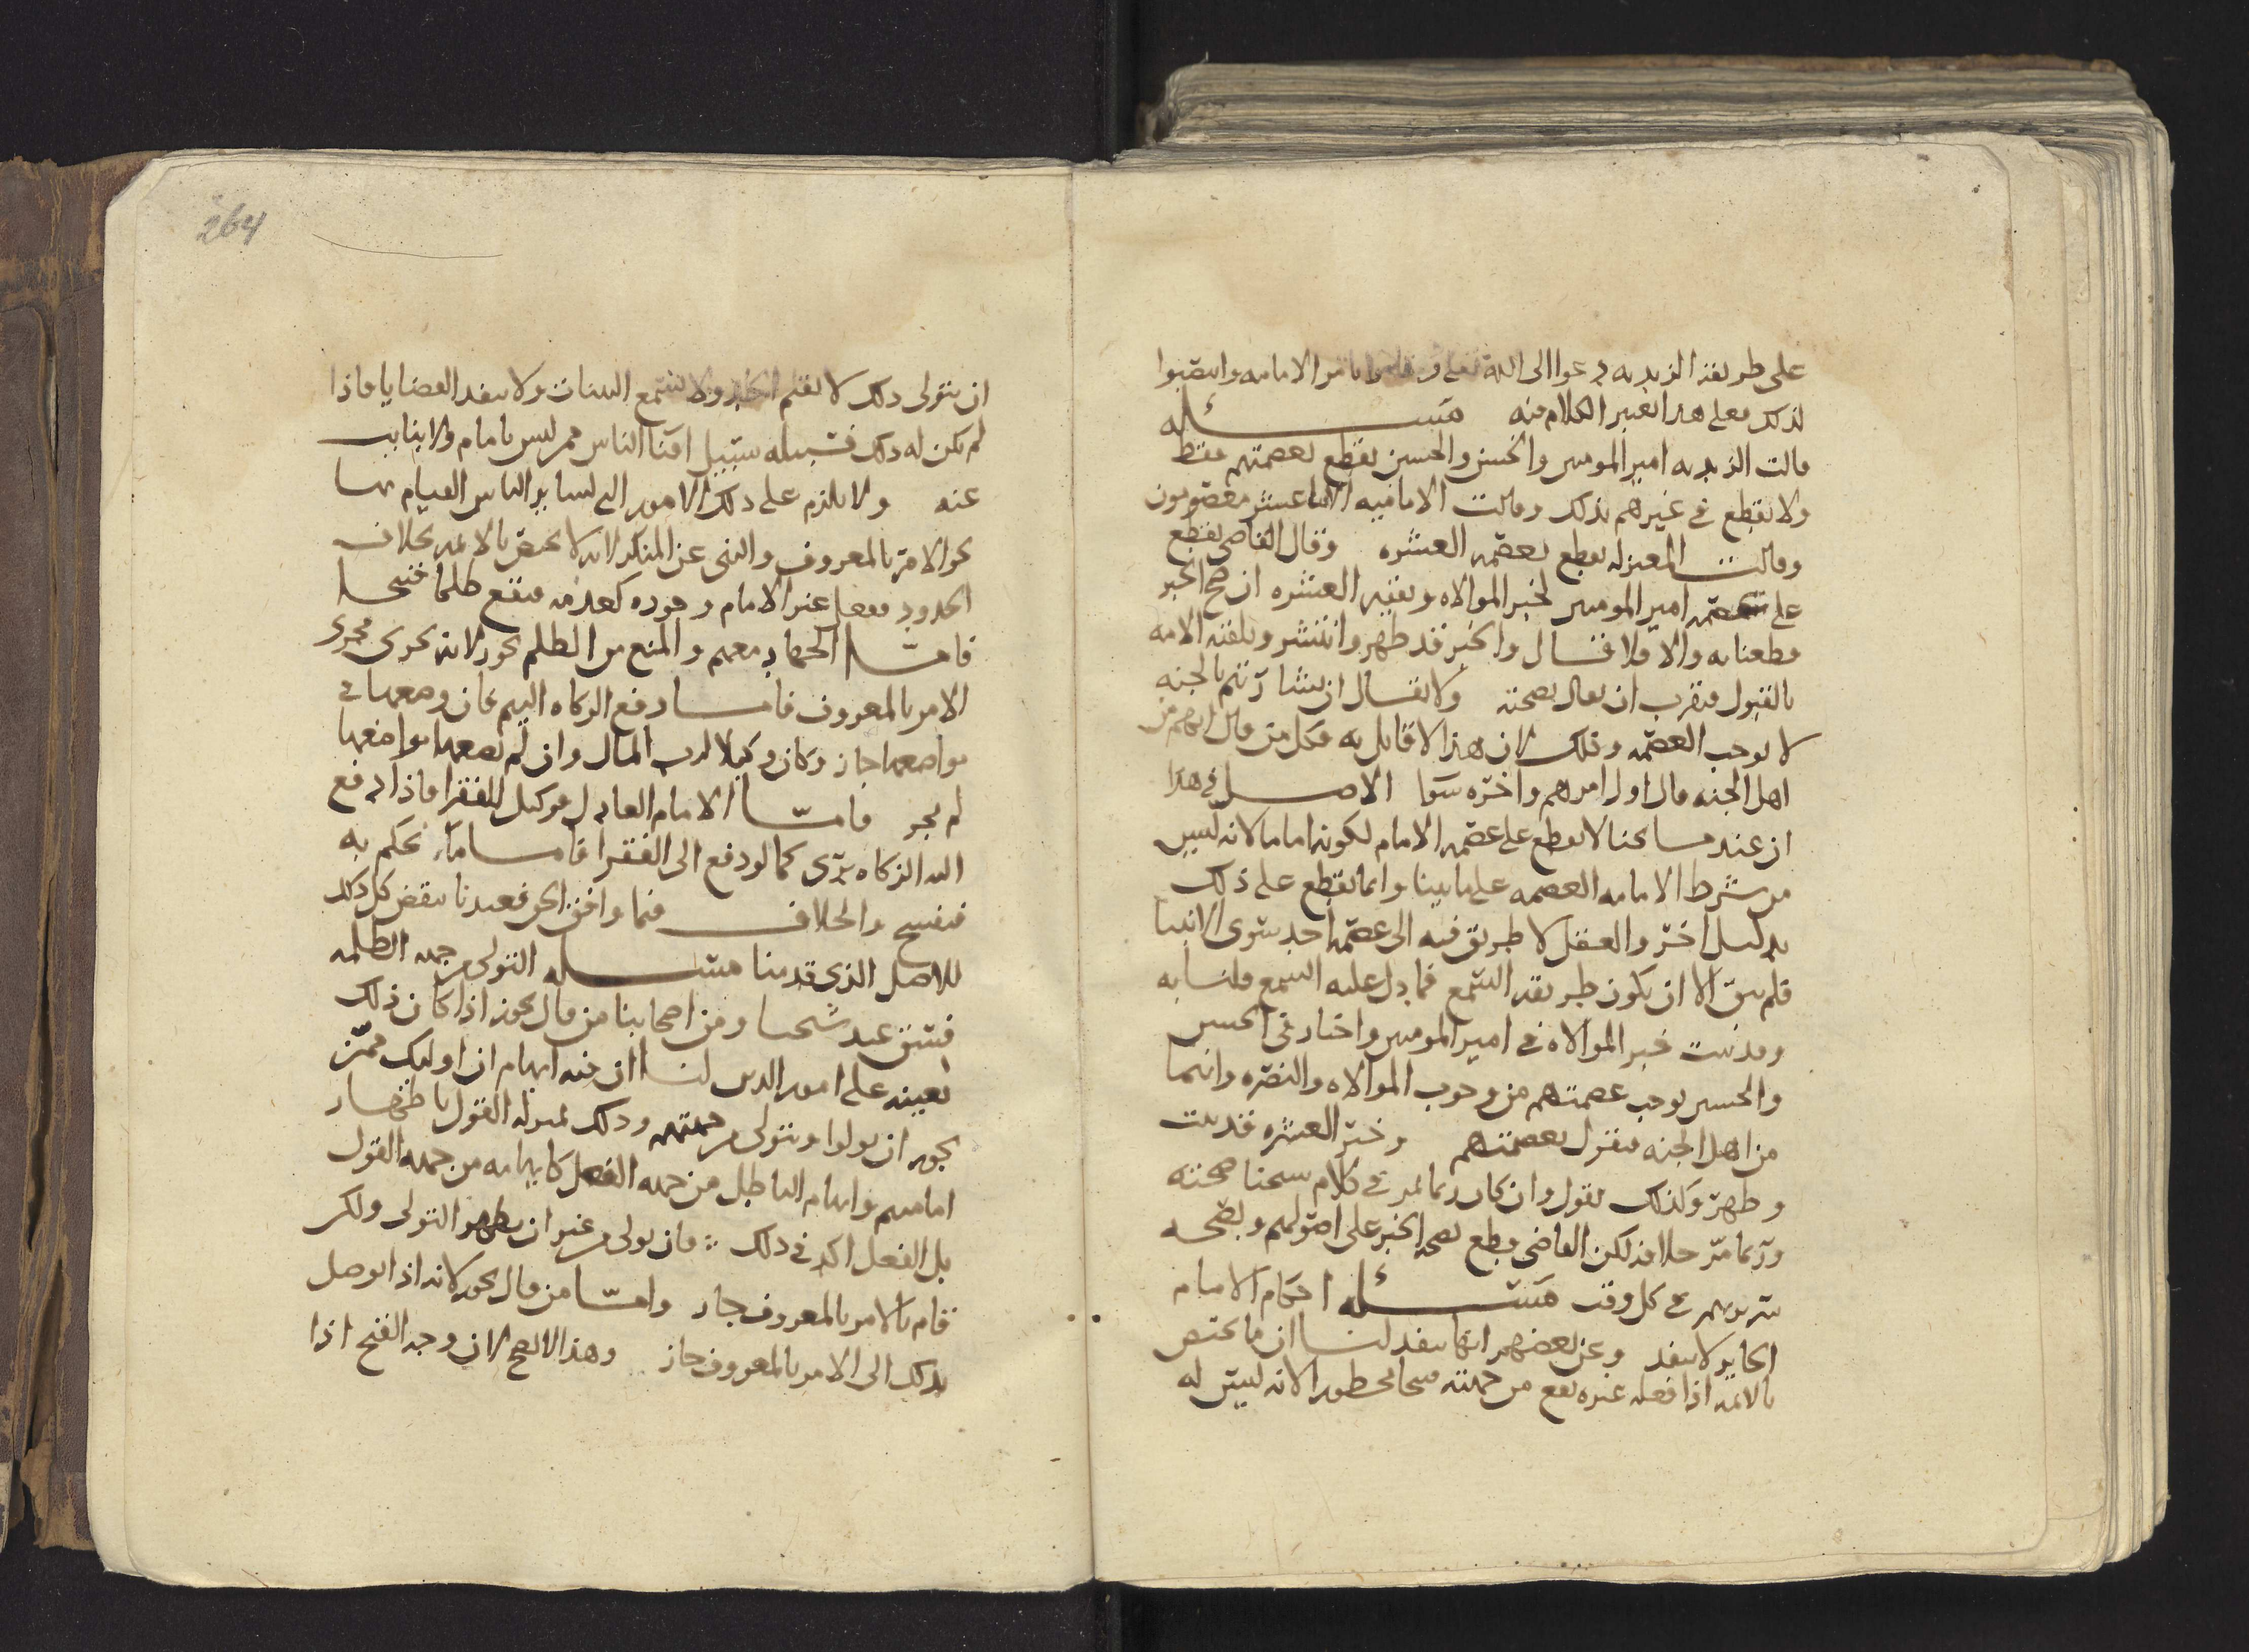 على طريقة الزيديه دعوا الى الله تعلى و قاموا بامر الامامه وانتصبوا
لذلك فعلى هذا يعتبر الكلام فيه مسئله
قالت الزيديه امير المومنين والحسن والحسين نقطع بعصمتهم فقط
ولا نقطع في غيرهم بذلك وقالت الاماميه الاثنا عشر معصومون
وقالت المعتزله نقطع بعصمه العشره وقال القاضى نقطع
على عصمه امير المومنين لخبر الموالاه وبقيه العشره ان صح الخبر
قطعنا به والا فلا فقال والخبر قد ظهر وانتشر وتلقته الامه
بالقبول فيقرب ان يقال بصحته ولا يقال ان بشارتهم بالجنه
لا توجب العصمه وذلك لان هذا لا قايل به فكل من قال انهم من
اهل الجنه قال اول امرهم واخره سوا الاصل في هذا
ان عند مشايخنا لا نقطع على عصمه الامام لكونه اماما لانه ليس
من شرط الامامه العصمه على ما بينا وانما نقطع على ذلك
بدليل اخر والعقل لا طريق فيه الى عصمه احد سوى الانبيا
فلم يبق الا ان يكون طريقه السمع فما دل عليه السمع قلنا به
وقد ثبت خبر الموالاه في امير المومنين واخبار في الحسن
والحسين توجب عصمتهم من وجوب الموالاه والنصره وانهما
من اهل الجنه فنقول بعصمتهم وخبر العشره قد ثبت
وظهر وكذلك نقول وان كان ربما لمر في كلام شيخنا صحته
وربما مر خلافه لكن القاضى قطع بصحه الخبر على اصولهم وبصححه
في كل وقت مسئله احكام الامام
الجاير لا تنفذ وعن بعضهم انها تنفذ لنا ان ما يختص
بالايمه اذا فعله غيره يقع من جهته قبيحا محظورا لانه ليس له
264
ان يتولى ذلك لا يقيم الحدود ولا يسمع البينات ولا ينفذ القضايا فاذا
لم يكن له ذلك فسبيله سبيل افنا الناس ممن ليس بامام ولا نايب
عنه ولا يلزم على ذلك الامور التى لساير الناس القيام بها
نحو الامر بالمعروف والنهى عن المنكر لانه لا يختص بالايمه بخلاف
الحدود ففعل غير الامام وجوده كعدمه فيقع ظلما قبيحا
فامـا الجهاد معهم والمنع من الظلم يجوز لانه يجرى مجرى
الامر بالمعروف فامـا دفع الزكاه اليهم فان وضعها في
مواضعها جاز وكان وكيلا لرب المال وان لم يضعها مواضعها
لم يجز فامـا الامام العادل فوكيل للفقرا فاذا دفع
اليه الزكاه برى كما لو دفع الى الفقرا فامـا ما يحكم به
فيفسخ والخلاف فيما وافق الحق فعندنا ينقض كل ذلك
للاصل الذى قدمنا مسئله التولى من جهه الظلمه
فسق عند شيخنا ومن اصحابنا من قال يجوز اذا كان ذلك
يعينه على امور الدين لنا ان فيه ايهام ان اوليك ممن
يجوز ان يولوا ويتولى من جهتهم وذلك بمنزله القول باظهار
امامتهم وايهام الباطل من جهه الفعل كايهامه من جهه القول
بل الفعل اكد في ذلك فان تولى من غير ان يظهر التولى ولكن
قام بالامر بالمعروف جاز وامـا من قال يجوز لانه اذا توصل
بذلك الى الامر بالمعروف جاز وهذا لا يصح لان وجه القبح اذا